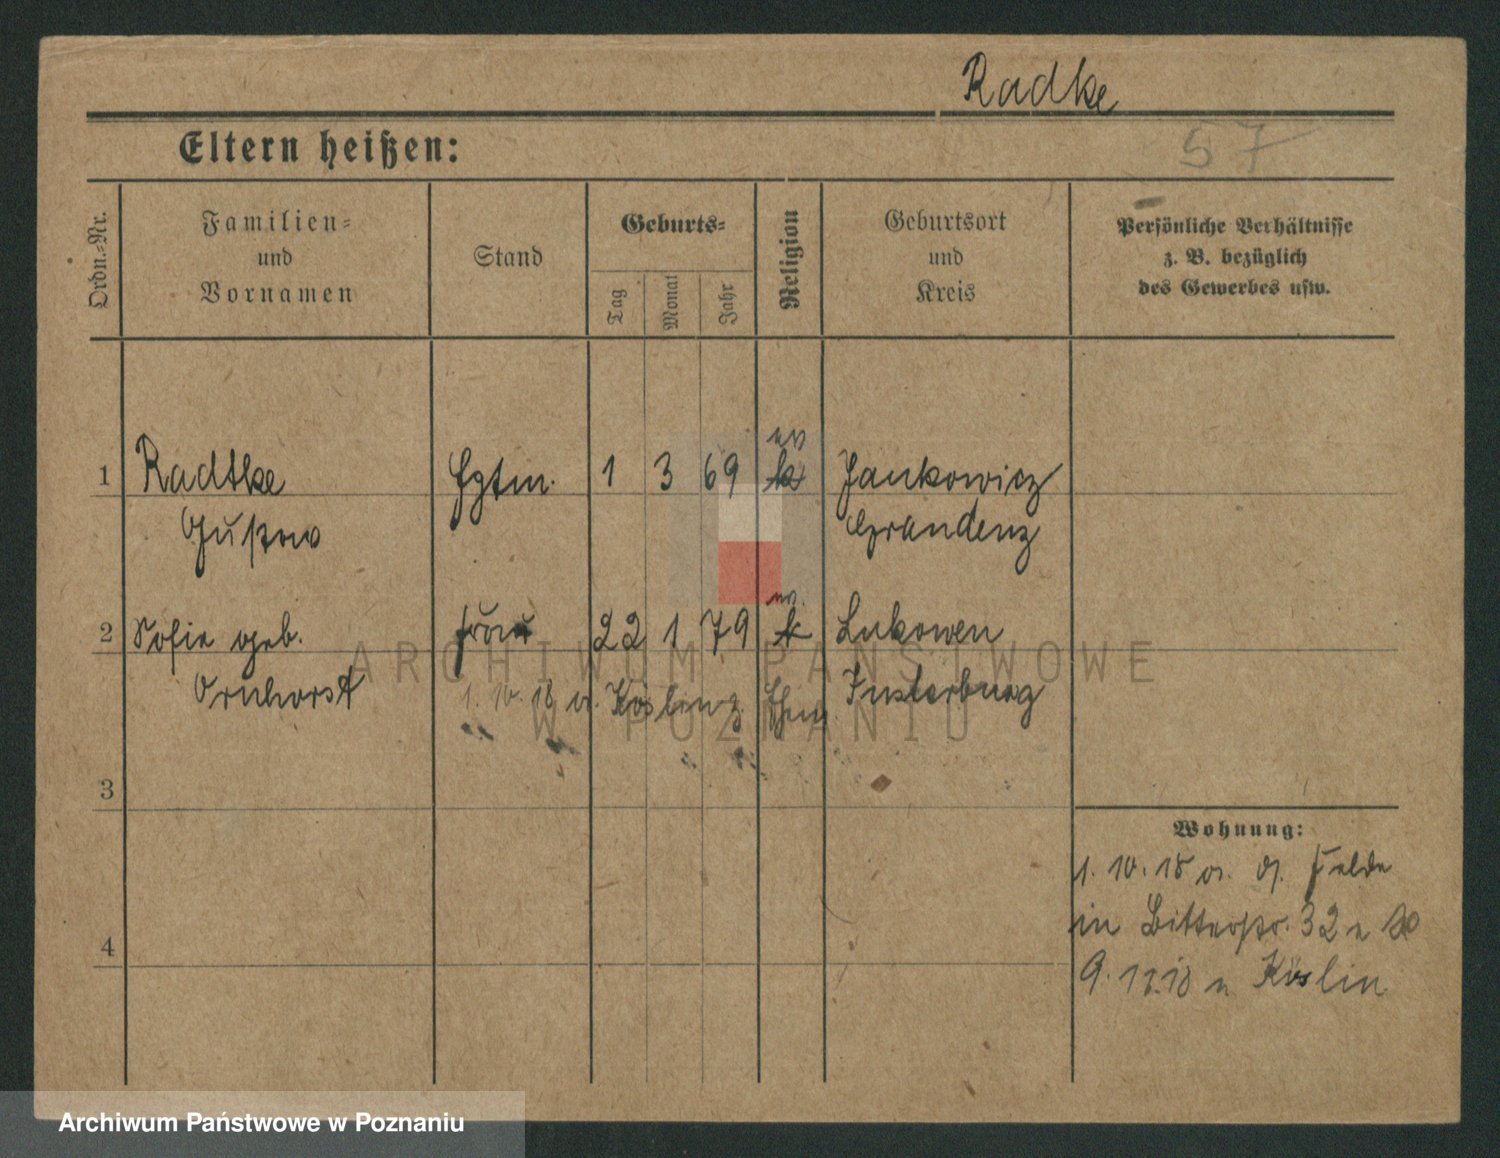 Radke
57
Eltern heißen:
Ordn.-Nr.
Familien-
und
Vornamen
Stand
Geburts-
Tag
Monat
Jahr
Religion
Geburtsort
und
Kreis
Persönliche Verhältnisse
z. B. bezüglich
des Gewerbes usw.
1 Radtke Hptm. 1 3 69 ev k Jankowicz
Gustav Graudenz
2 Sofie geb. Frau 22 1 79 ev. k Lukowen
Ornhorst Insterburg
1. 10. 18 v.
3
4
Wohnung:
1. 10. 18 v. d. Felde
in Bitterstr. 32
9. 12. 18 n Köslin
ARCHIWUM PAŃSTWOWE
W POZNANIU
Archiwum Państwowe w Poznaniu